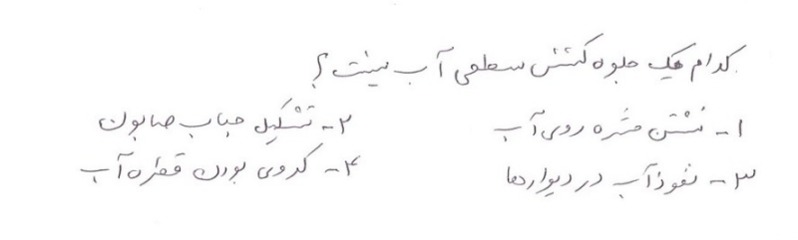 کدام یک جلوه کشش سطحی آب نیست؟
۱- نشستن حشره روی آب ۲- تشکیل حباب صابون
۳- نفوذ آب در دیوارها ۴- کروی بودن قطره آب